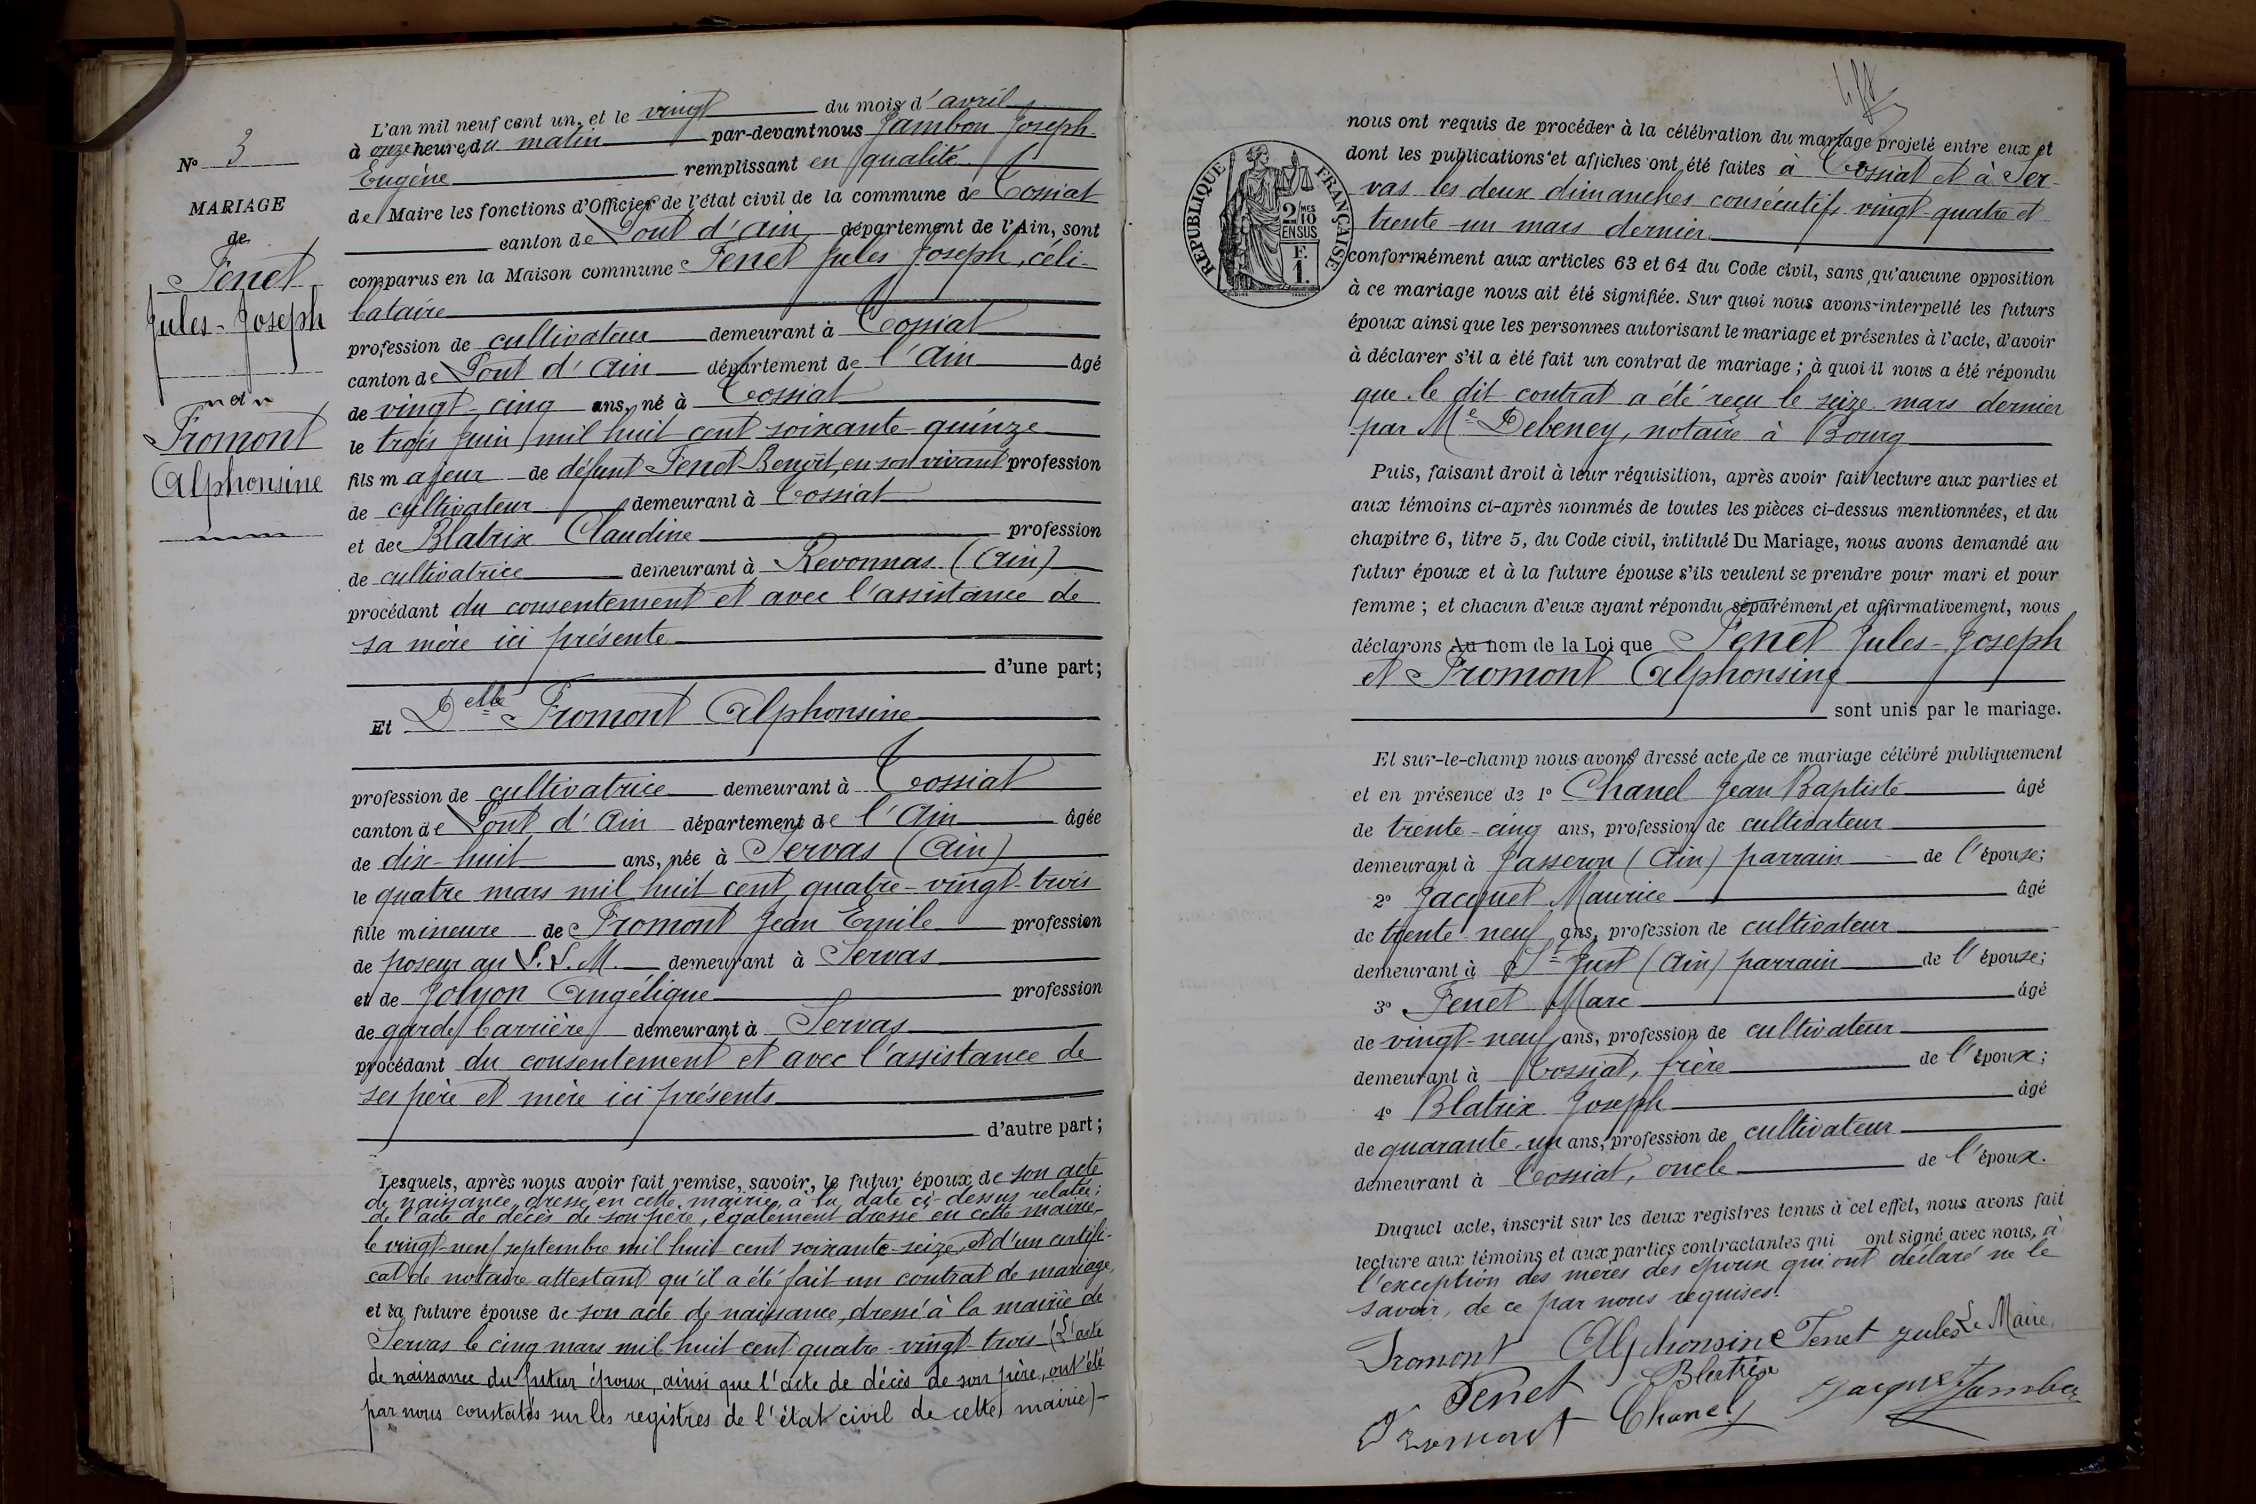 N° 3
MARIAGE
de
Tenet
Jules-Joseph
et
Fromont
Alphonsine
L'an mil neuf cent un, et le vingt du mois d'avril
à onze heures du matin par-devant nous Jambon Joseph
Eugène remplissant en qualité
de Maire les fonctions d'Officier de l'état civil de la commune de Tossiat
canton de Pont d'Ain département de l'Ain, sont
comparus en la Maison commune Tenet Jules Joseph, céli-
bataire
profession de cultivateur demeurant à Tossiat
canton de Pont d'Ain département de l'Ain âgé
de vingt-cinq ans, né à Tossiat
le trois juin mil huit cent soixante-quinze
fils majeur de défunt Tenet Benoît, en son vivant profession
de cultivateur demeurant à Tossiat
et de Blatrix Claudine profession
de cultivatrice demeurant à Revonnas (Ain)
procédant du consentement et avec l'assistance de
sa mère ici présente
d'une part;
Et Delle Fromont Alphonsine
profession de cultivatrice demeurant à Tossiat
canton de Pont d'Ain département de l'Ain âgée
de dix-huit ans, née à Servas (Ain)
le quatre mars mil huit cent quatre-vingt-trois
fille mineure de Fromont Jean Emile profession
de poseur au P.L.M. demeurant à Servas
et de Jolyon Angélique profession
de garde barrière demeurant à Servas
procédant du consentement et avec l'assistance de
ses père et mère ici présents
d'autre part;
Lesquels, après nous avoir fait remise, savoir, le futur époux de son acte
de naissance, dressé en cette mairie, à la date ci-dessus relatée;
de l'acte de décès de son père, également dressé en cette mairie,
le vingt-neuf septembre mil huit cent soixante-seize, et d'un certifi-
cat de notaire attestant qu'il a été fait un contrat de mariage,
et la future épouse de son acte de naissance, dressé à la mairie de
Servas le cinq mars mil huit cent quatre-vingt-trois (L'acte
de naissance du futur époux, ainsi que l'acte de décès de son père, ont été
par nous constatés sur les registres de l'état civil de cette mairie)
RÉPUBLIQUE FRANÇAISE
2/10 MES
EN SUS
F.
1.
nous ont requis de procéder à la célébration du mariage projeté entre eux et
dont les publications et affiches ont été faites à Tossiat et à Ser-
vas les deux dimanches consécutifs vingt-quatre et
trente-un mars dernier
conformément aux articles 63 et 64 du Code civil, sans qu'aucune opposition
à ce mariage nous ait été signifiée. Sur quoi nous avons interpellé les futurs
époux ainsi que les personnes autorisant le mariage et présentes à l'acte, d'avoir
à déclarer s'il a été fait un contrat de mariage; à quoi il nous a été répondu
que le dit contrat a été reçu le seize mars dernier
par Me Debeney, notaire à Bourg
Puis, faisant droit à leur réquisition, après avoir fait lecture aux parties et
aux témoins ci-après nommés de toutes les pièces ci-dessus mentionnées, et du
chapitre 6, titre 5, du Code civil, intitulé Du Mariage, nous avons demandé au
futur époux et à la future épouse s'ils veulent se prendre pour mari et pour
femme; et chacun d'eux ayant répondu séparément et affirmativement, nous
déclarons Au nom de la Loi que Tenet Jules-Joseph
et Fromont Alphonsine
sont unis par le mariage.
Et sur-le-champ nous avons dressé acte de ce mariage célébré publiquement
et en présence de 1° Chanel Jean Baptiste âgé
de trente-cinq ans, profession de cultivateur
demeurant à Jasseron (Ain) parrain de l'épouse;
2° Jacquet Maurice âgé
de trente-neuf ans, profession de cultivateur
demeurant à St Just (Ain) parrain de l'épouse;
3° Tenet Marc âgé
de vingt-neuf ans, profession de cultivateur
demeurant à Tossiat, frère de l'époux;
4° Blatrix Joseph âgé
de quarante-un ans, profession de cultivateur
demeurant à Tossiat, oncle de l'époux.
Duquel acte, inscrit sur les deux registres tenus à cet effet, nous avons fait
lecture aux témoins et aux parties contractantes qui ont signé avec nous, à
l'exception des mères des époux qui ont déclaré ne le
savoir, de ce par nous requises.
Fromont Alphonsine Tenet Jules Le Maire,
Tenet Blatrix Jacquet Jambon
Fromont Chanel